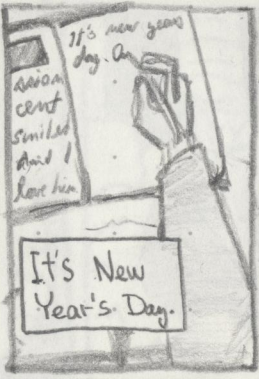 cent
smiles
And I
love him
It's new years
day. On
It's New
Year's Day.